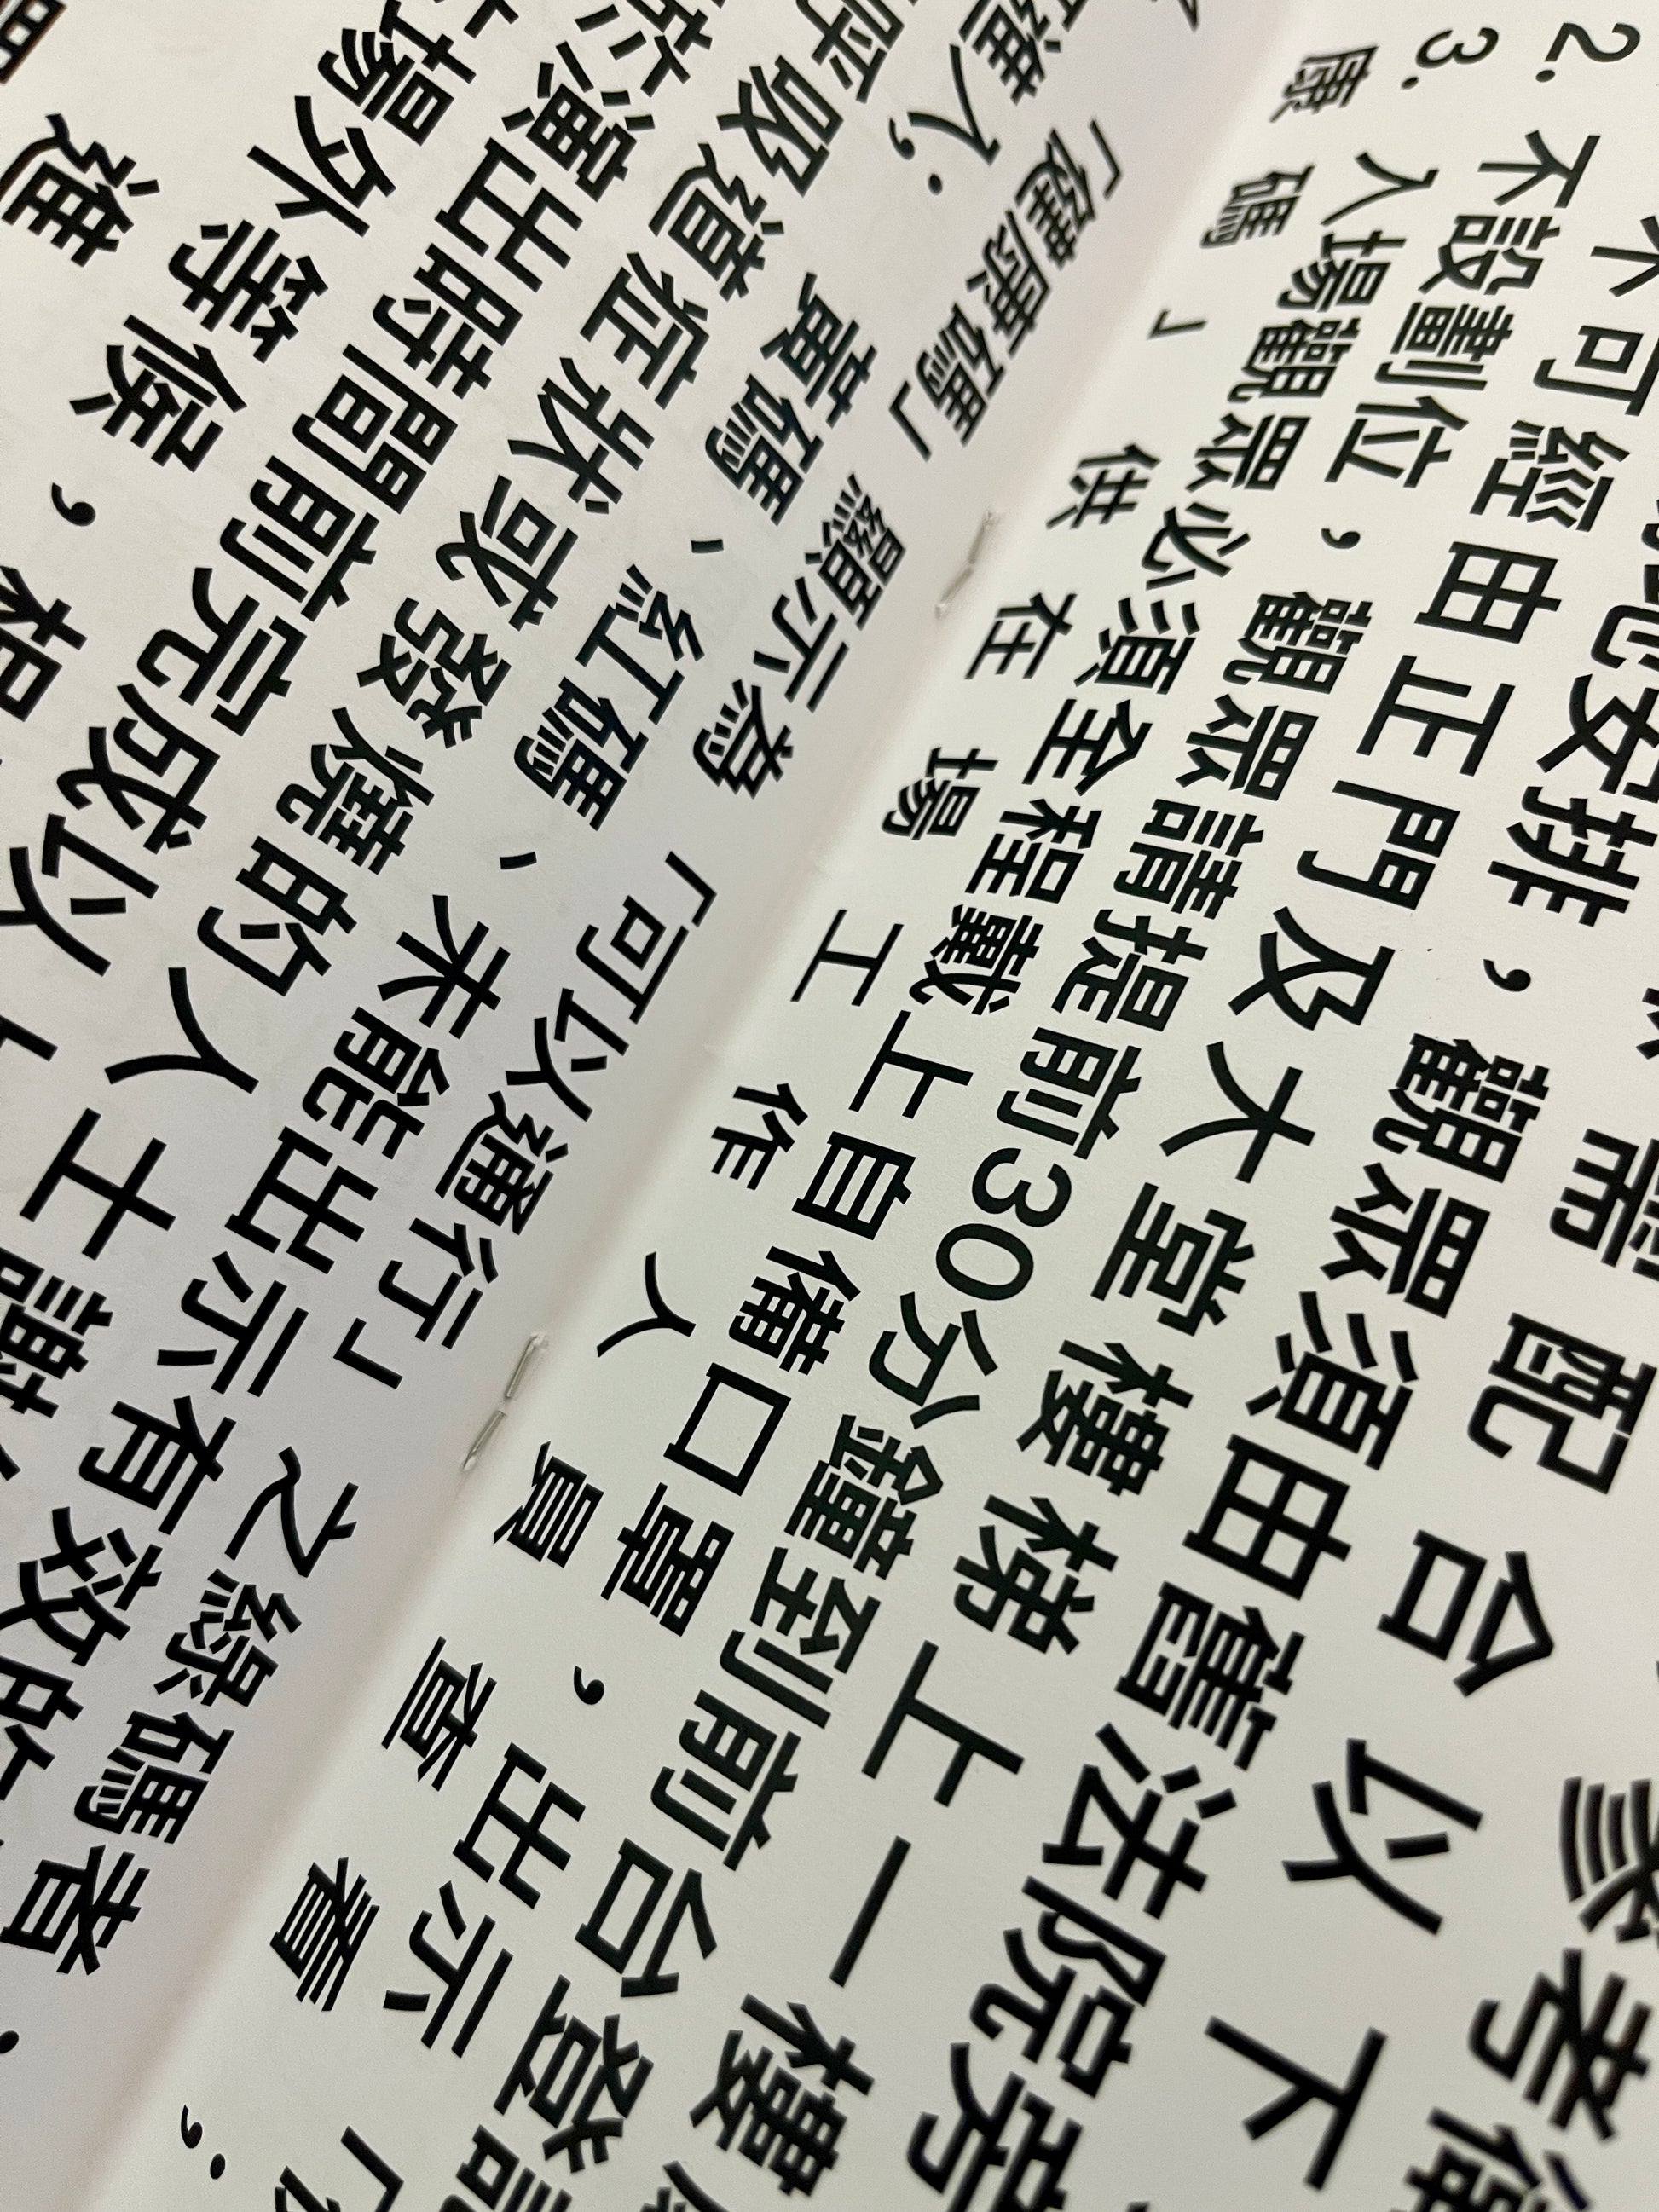 參考衛
需配合以下
安排，觀眾須由舊法院旁
不可經由正門及大堂樓梯上一樓
2. 不設劃位，觀眾請提前30分鐘到前台登記
3. 入場觀眾必須全程戴上自備口罩，出示「
康碼」供在場工作人員查看；
「健康碼」顯示為「可以通行」之綠碼者
准入；黃碼、紅碼、未能出示有效的
呼吸道症狀或發燒的人士謝
於演出時間前完成以上
場外等候，
進